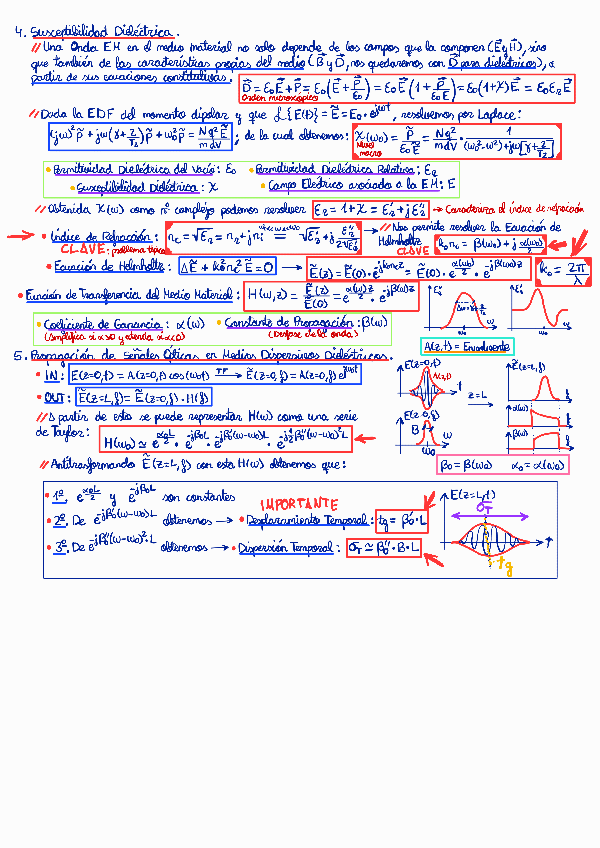 4. Susceptibilidad Dieléctrica.
// Una Onda EM en el medio material no solo depende de los campos que la componen (E⃗ y H⃗), sino
que también de las características propias del medio (B⃗ y D⃗, nos quedaremos con D⃗ para dieléctricos), a
partir de sus ecuaciones constitutivas.
D⃗ = ε₀E⃗ + P⃗ = ε₀(E⃗ + P⃗/ε₀) = ε₀E⃗(1 + P⃗/ε₀E⃗) = ε₀(1+χ)E⃗ = ε₀ε₂E⃗
Orden microscópico
// Dada la EDF del momento dipolar y que ℒ{E(t)} = Ẽ = E₀·e^jωt, resolvemos por Laplace:
(jω)²p̃ + jω(γ+2/τ₂)p̃ + ω₀²p̃ = Nq²Ẽ/mdV ; de la cual obtenemos: χ(ω₀) = P̃/ε₀Ẽ = Nq²/mdV · 1/(ω₀²-ω²)+jω[γ+2/τ₂]
Nivel macro
• Permitividad Dieléctrica del Vacío: ε₀ • Permitividad Dieléctrica Relativa: ε₂
• Susceptibilidad Dieléctrica: χ • Campo Eléctrico asociado a la EM: E
// Obtenida χ(ω) como nº complejo podemos resolver ε₂ = 1+χ = ε₂' + jε₂'' → Caracteriza el índice de refracción
• Índice de Refracción: n_c = √ε₂ = n₂ + jnᵢ = √ε₂' + j ε₂''/2√ε₂' → // Nos permite resolver la Ecuación de
CLAVE: problema típico
Helmholtz k₀n_c = β(ω) + j α(ω)/2
CLAVE
• Ecuación de Helmholtz: ΔẼ + k₀²n_c²Ẽ = 0 → Ẽ(z) = Ẽ(0)·e^jk₀n_c z = Ẽ(0)·e^α(ω)z/2 · e^-jβ(ω)z
k₀ = 2π/λ
• Función de Transferencia del Medio Material: H(ω,z) = Ẽ(z)/Ẽ(0) = e^α(ω)z/2 · e^-jβ(ω)z
• Coeficiente de Ganancia: α(ω) • Constante de Propagación: β(ω)
(Amplifica si α>0 y atenúa si α<0) (Desfase de la onda)
A(z,t) = Envolvente
5. Propagación de Señales Ópticas en Medios Dispersivos Dieléctricos.
• IN: E(z=0,t) = A(z=0,t) cos(ω₀t) TF→ Ẽ(z=0,f) = A(z=0,f) e^jω₀t
• OUT: Ẽ(z=L,f) = Ẽ(z=0,f)·H(f)
// A partir de esto se puede representar H(ω) como una serie
de Taylor: H(ω₀) ≃ e^α₀L/2 · e^-jβ₀L · e^-jβ₀'(ω-ω₀)L · e^-j½β₀''(ω-ω₀)²L
// Antitransformando Ẽ(z=L,f) con esta H(ω) obtenemos que:
E(z=0,t)
A(z,t)
t
z=L
Ẽ(z=L,f)
f
α(f)
β(f)
E(z=0,f)
B
ω
ω₀
β₀ = β(ω₀) α₀ = α(ω₀)
• 1º. e^α₀L/2 y e^-jβ₀L son constantes
IMPORTANTE
• 2º. De e^-jβ₀'(ω-ω₀)L obtenemos → • Desplazamiento Temporal: tg = β₀'·L
• 3º. De e^-jβ₀''(ω-ω₀)²·L obtenemos → • Dispersión Temporal: σ_T ≃ β₀''·B·L
E(z=L,t)
σ_T
t
tg